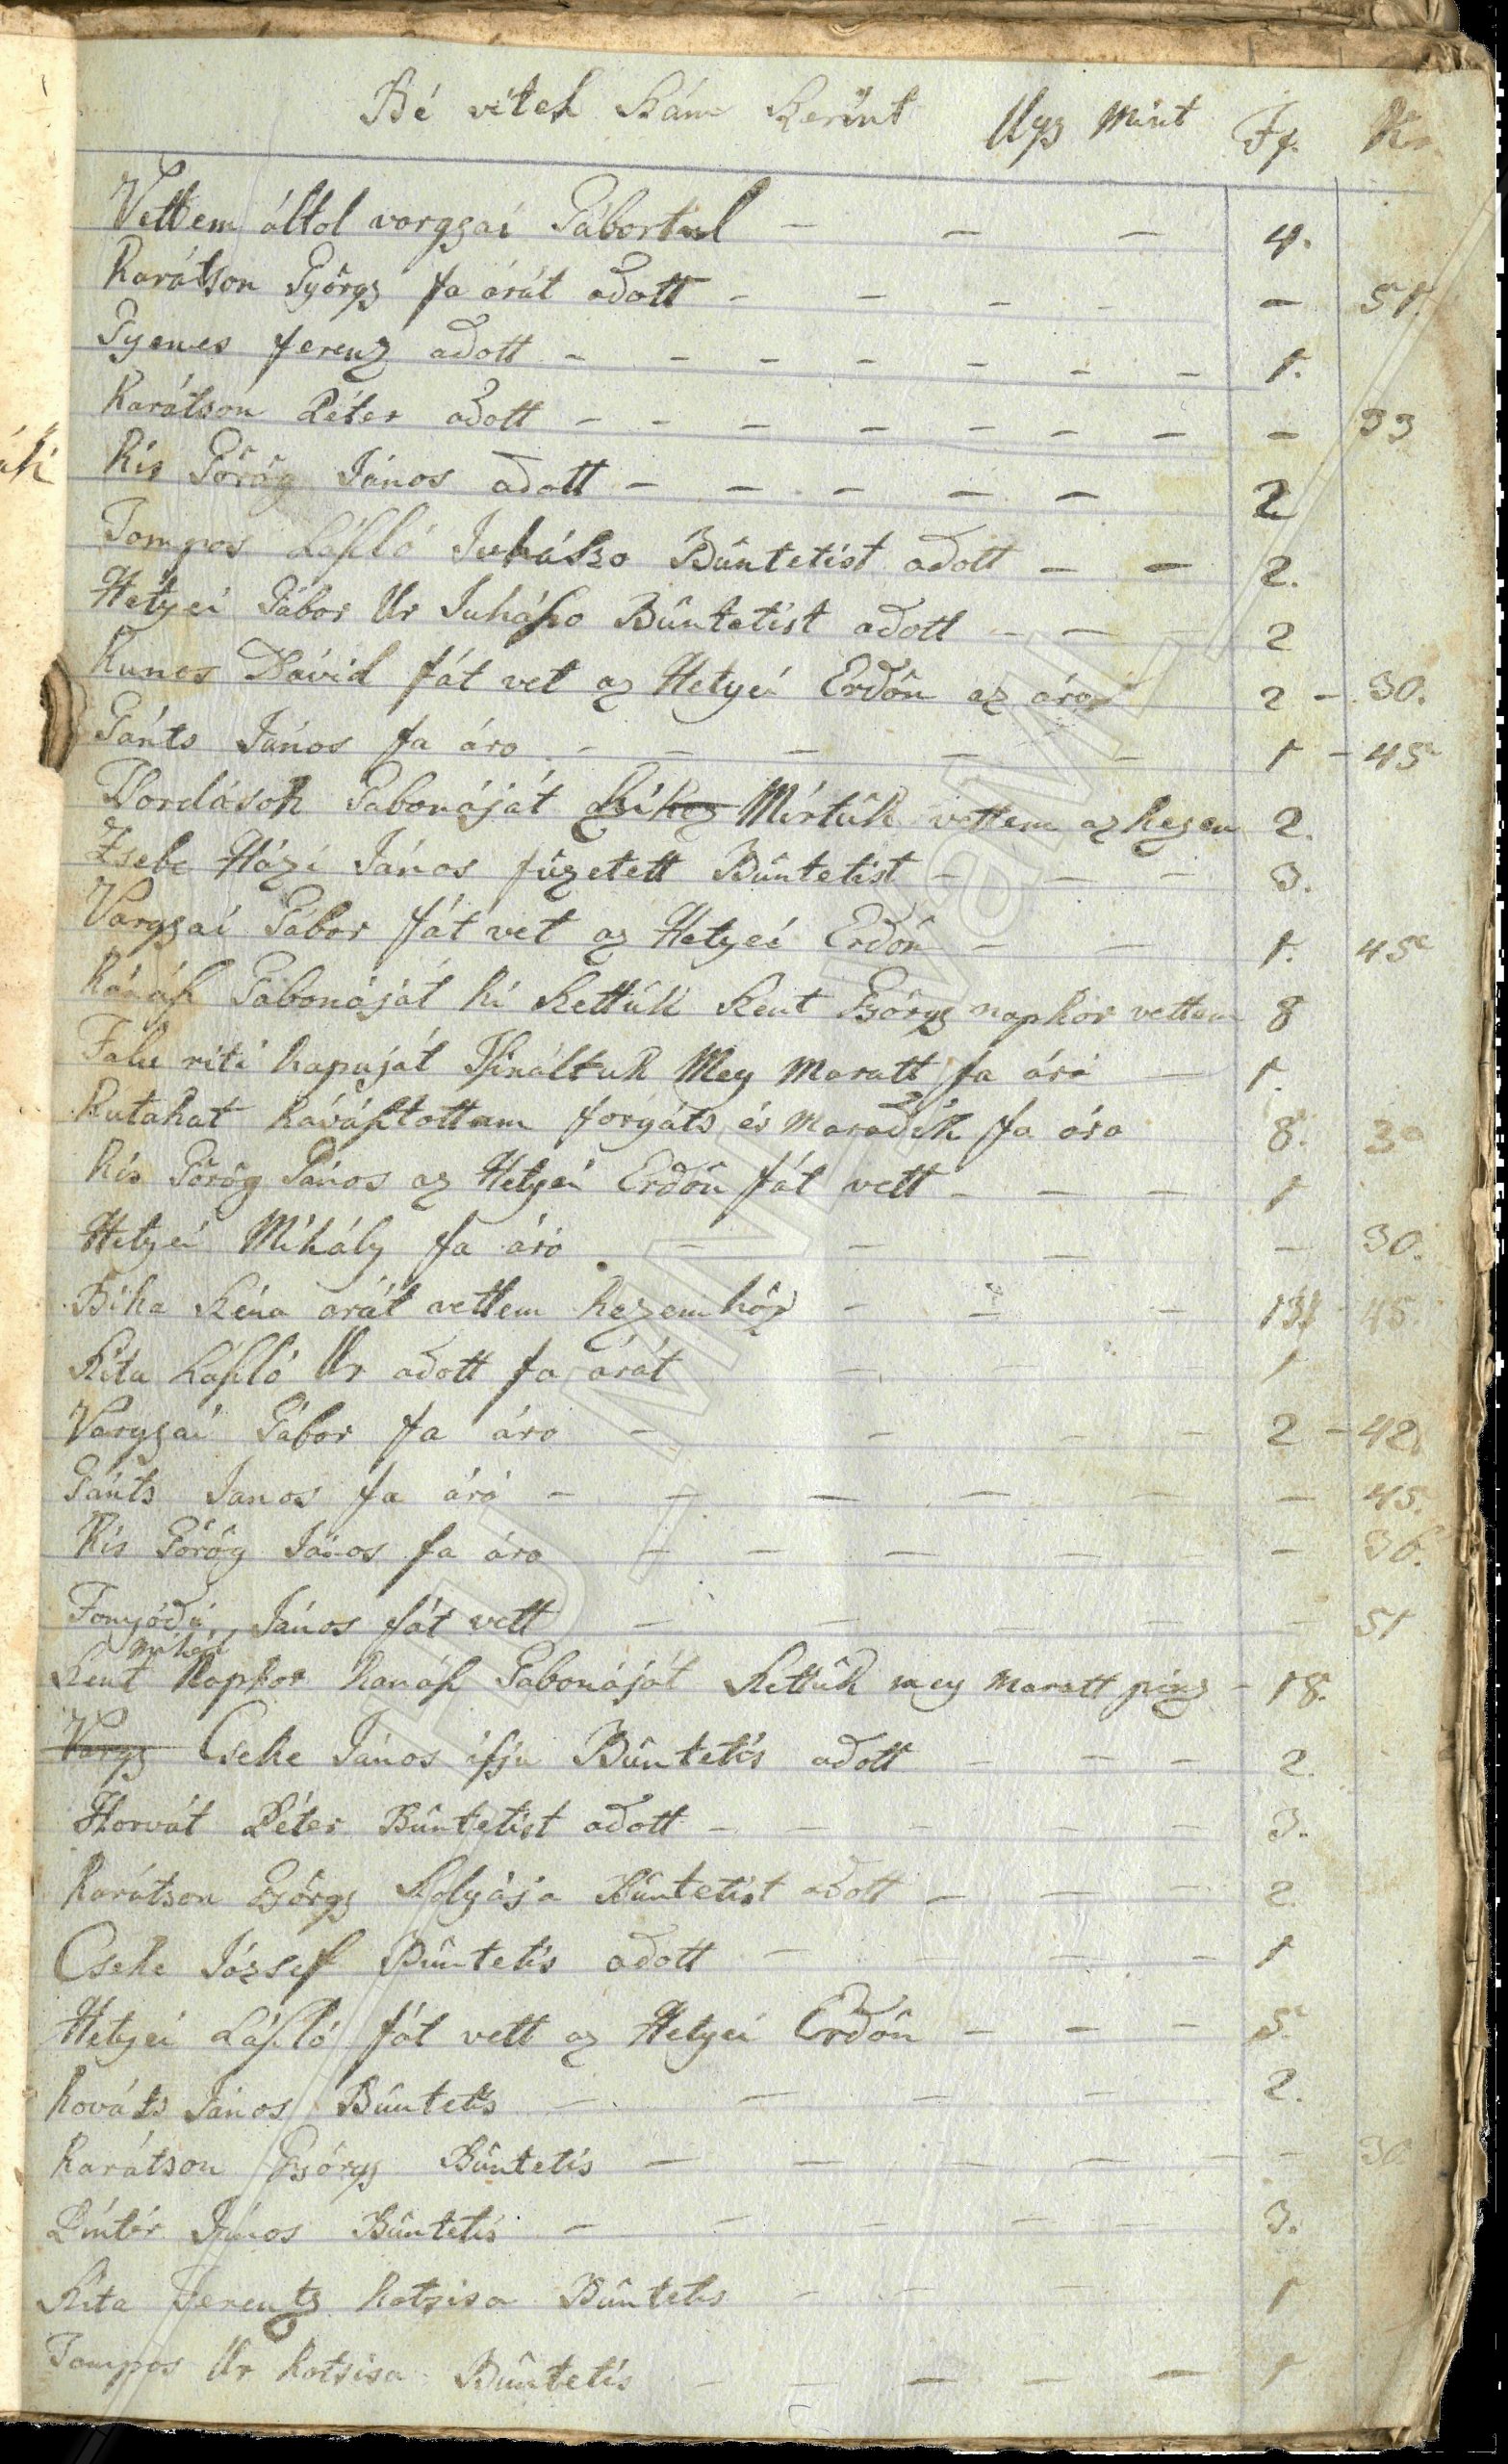 Bé vétel Szám Szerint Ugy Mint Ff. Kr.
Vettem áltol vargyai Gábortul — — — 4.
Karátson György fa árát adott — — — — — 51.
Gyenes ferenz adott — — — — — — — 1.
Karátson Péter adott — — — — — — — — 33
Kis Görög János adott — — — — — 2
Tompos László Juhásza Büntetist adott — — 2.
Hetyei Gábor Ur Juhásza Büntetist adott — — — 2
Kunos Dávid fát vet az Hetyei Erdőn az ára 2 — 30.
Gánts János fa ára — — — — — 1 — 45
Dordások Gabonáját Mértük vettem az 2.
Zsebe Házi János füzetett Büntetist — — — 3.
Vargyai Gábor fát vet az Hetyei Erdőn — — 1. 45
Kanász Gabonáját ki Settük Szent György napkor vettem 8
Falu riti kapuját Tsináltuk Meg Maratt fa ára — 1.
Kutakat forgáts és Maradék fa ára 8. 30
Kis Görög János az Hetyei Erdőn fát vett — — — 1
Hetyei Mihály fa ára — — — — 30.
Bika Széna arát vettem kezemhöz — — — 131 — 45.
Szita László Ur adott fa árát — — — 1
Vargyai Gábor fa ára — — — — 2 — 42.
Gánts Janos fa ára — — — — — — 45.
Kis Görög János fa ára — — — — — — 36.
Fonyódi János fát vett — — — — — 51
Mihál
Szent Napkor kanász Gabonáját Settük meg maratt pinz — 18.
Vargy Cseke János ifju Büntetés adott — — — 2.
Horvát Péter Büntetist adott — — — — — 3.
Karátson György Szolgája Büntetist adott — — — 2.
Cseke József Büntetés adott — — — — 1
Hetyei László fát vett az Hetyei Erdőn — — — 5.
Kováts János Büntetés — — — — 2.
Karátson György Büntetés — — — — — — 30
Pintér János Büntetés — — — — — 3.
Szita Ferentz kotsisa Büntetés — — — 1
Tompos Ur kotsisa Büntetés — — — — — 1
HU_MNL_VEML